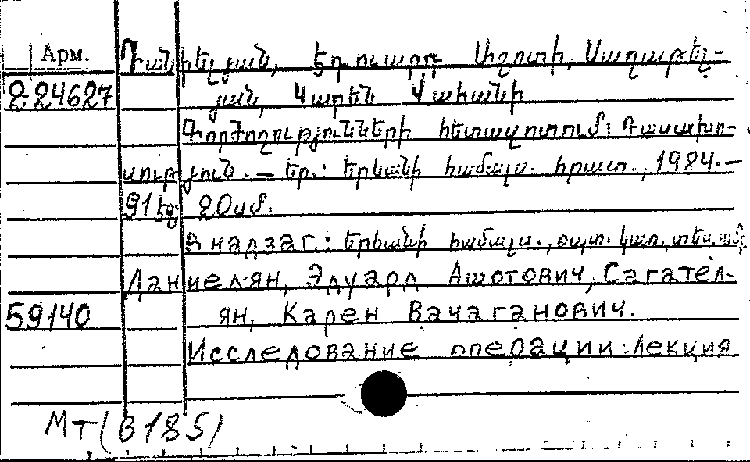 Арм. Դանիելյան, Էդուարդ Աշոտի, Սաղաթել-
2 24627 յան, Կարեն Վահանի
Գործողությունների հետազոտում: Դասախո-
սություն. — Եր.: Երևանի համալս. հրատ., 1984.—
91 էջ; 20 սմ.
В надзаг: Երևանի համալս.,
Даниелян, Эдуард Ашотович, Сагател-
59140 ян, Карен Вачаганович.
Исследование операции: Лекция
МТ(В185)